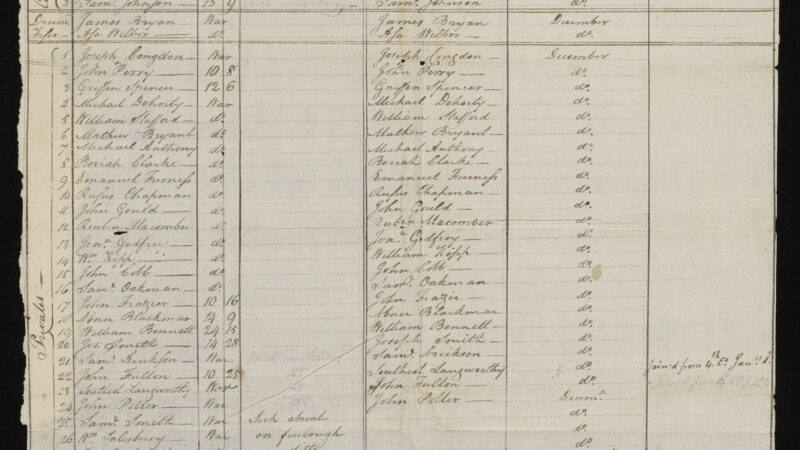 3 Sam.l Johnson — 13 9 Sam.l Johnson do.
James Bryan War James Bryan December
Fifer — Asa Wilbor — do. Asa Wilbor — do.
1 Joseph Congdon — War Joseph Congdon — December
2 John Perry — 10 8 John Perry — do.
3 Griffen Spencer — 12 6 Griffen Spencer — do.
4 Michael Dehorty — War Michael Dehorty — do.
5 William Stafford — do. William Stafford do.
6 Mathew Bryant — do. Mathew Bryant — do.
7 Michael Anthony do. Michael Anthony — do.
8 Clarke — do. Beriah Clarke — do.
9 Emanuel Furness do. Emanuel Furness do.
10 Rufus Chapman do. Rufus Chapman do.
11 John Gould — do. John Gould — do.
12 Reubin Macomber do. Ruben Macomber do.
13 Jon.a Godfrey — do. Jon.a Godfrey — do.
14 Wm. Kipp — do. William Kipp do.
15 John Cobb — do. John Cobb — do.
16 Sam.l Oakman — do. Sam.l Oakman — do.
17 John Frazier — 10 16 John Frazier — do.
18 Abner Blackmar 14 9 Abner Blackmar do.
19 William Bennett 24 15 William Bennett — do.
20 Jos. Smith — 14 28 Joseph Smith — do.
21 Sam.l War Sam.l do.
22 John Fulton — 10 25 Southcot Langworthy do. Join'd from 4.th Co. Jan.y 1.
23 Southcot Langworthy War John Fulton — do.
24 John Peller — War John Peller — Decem.r
25 Sam.l Smith — War Sick absent do.
26 Wm. Salisbury — War on furlough do.
Privates